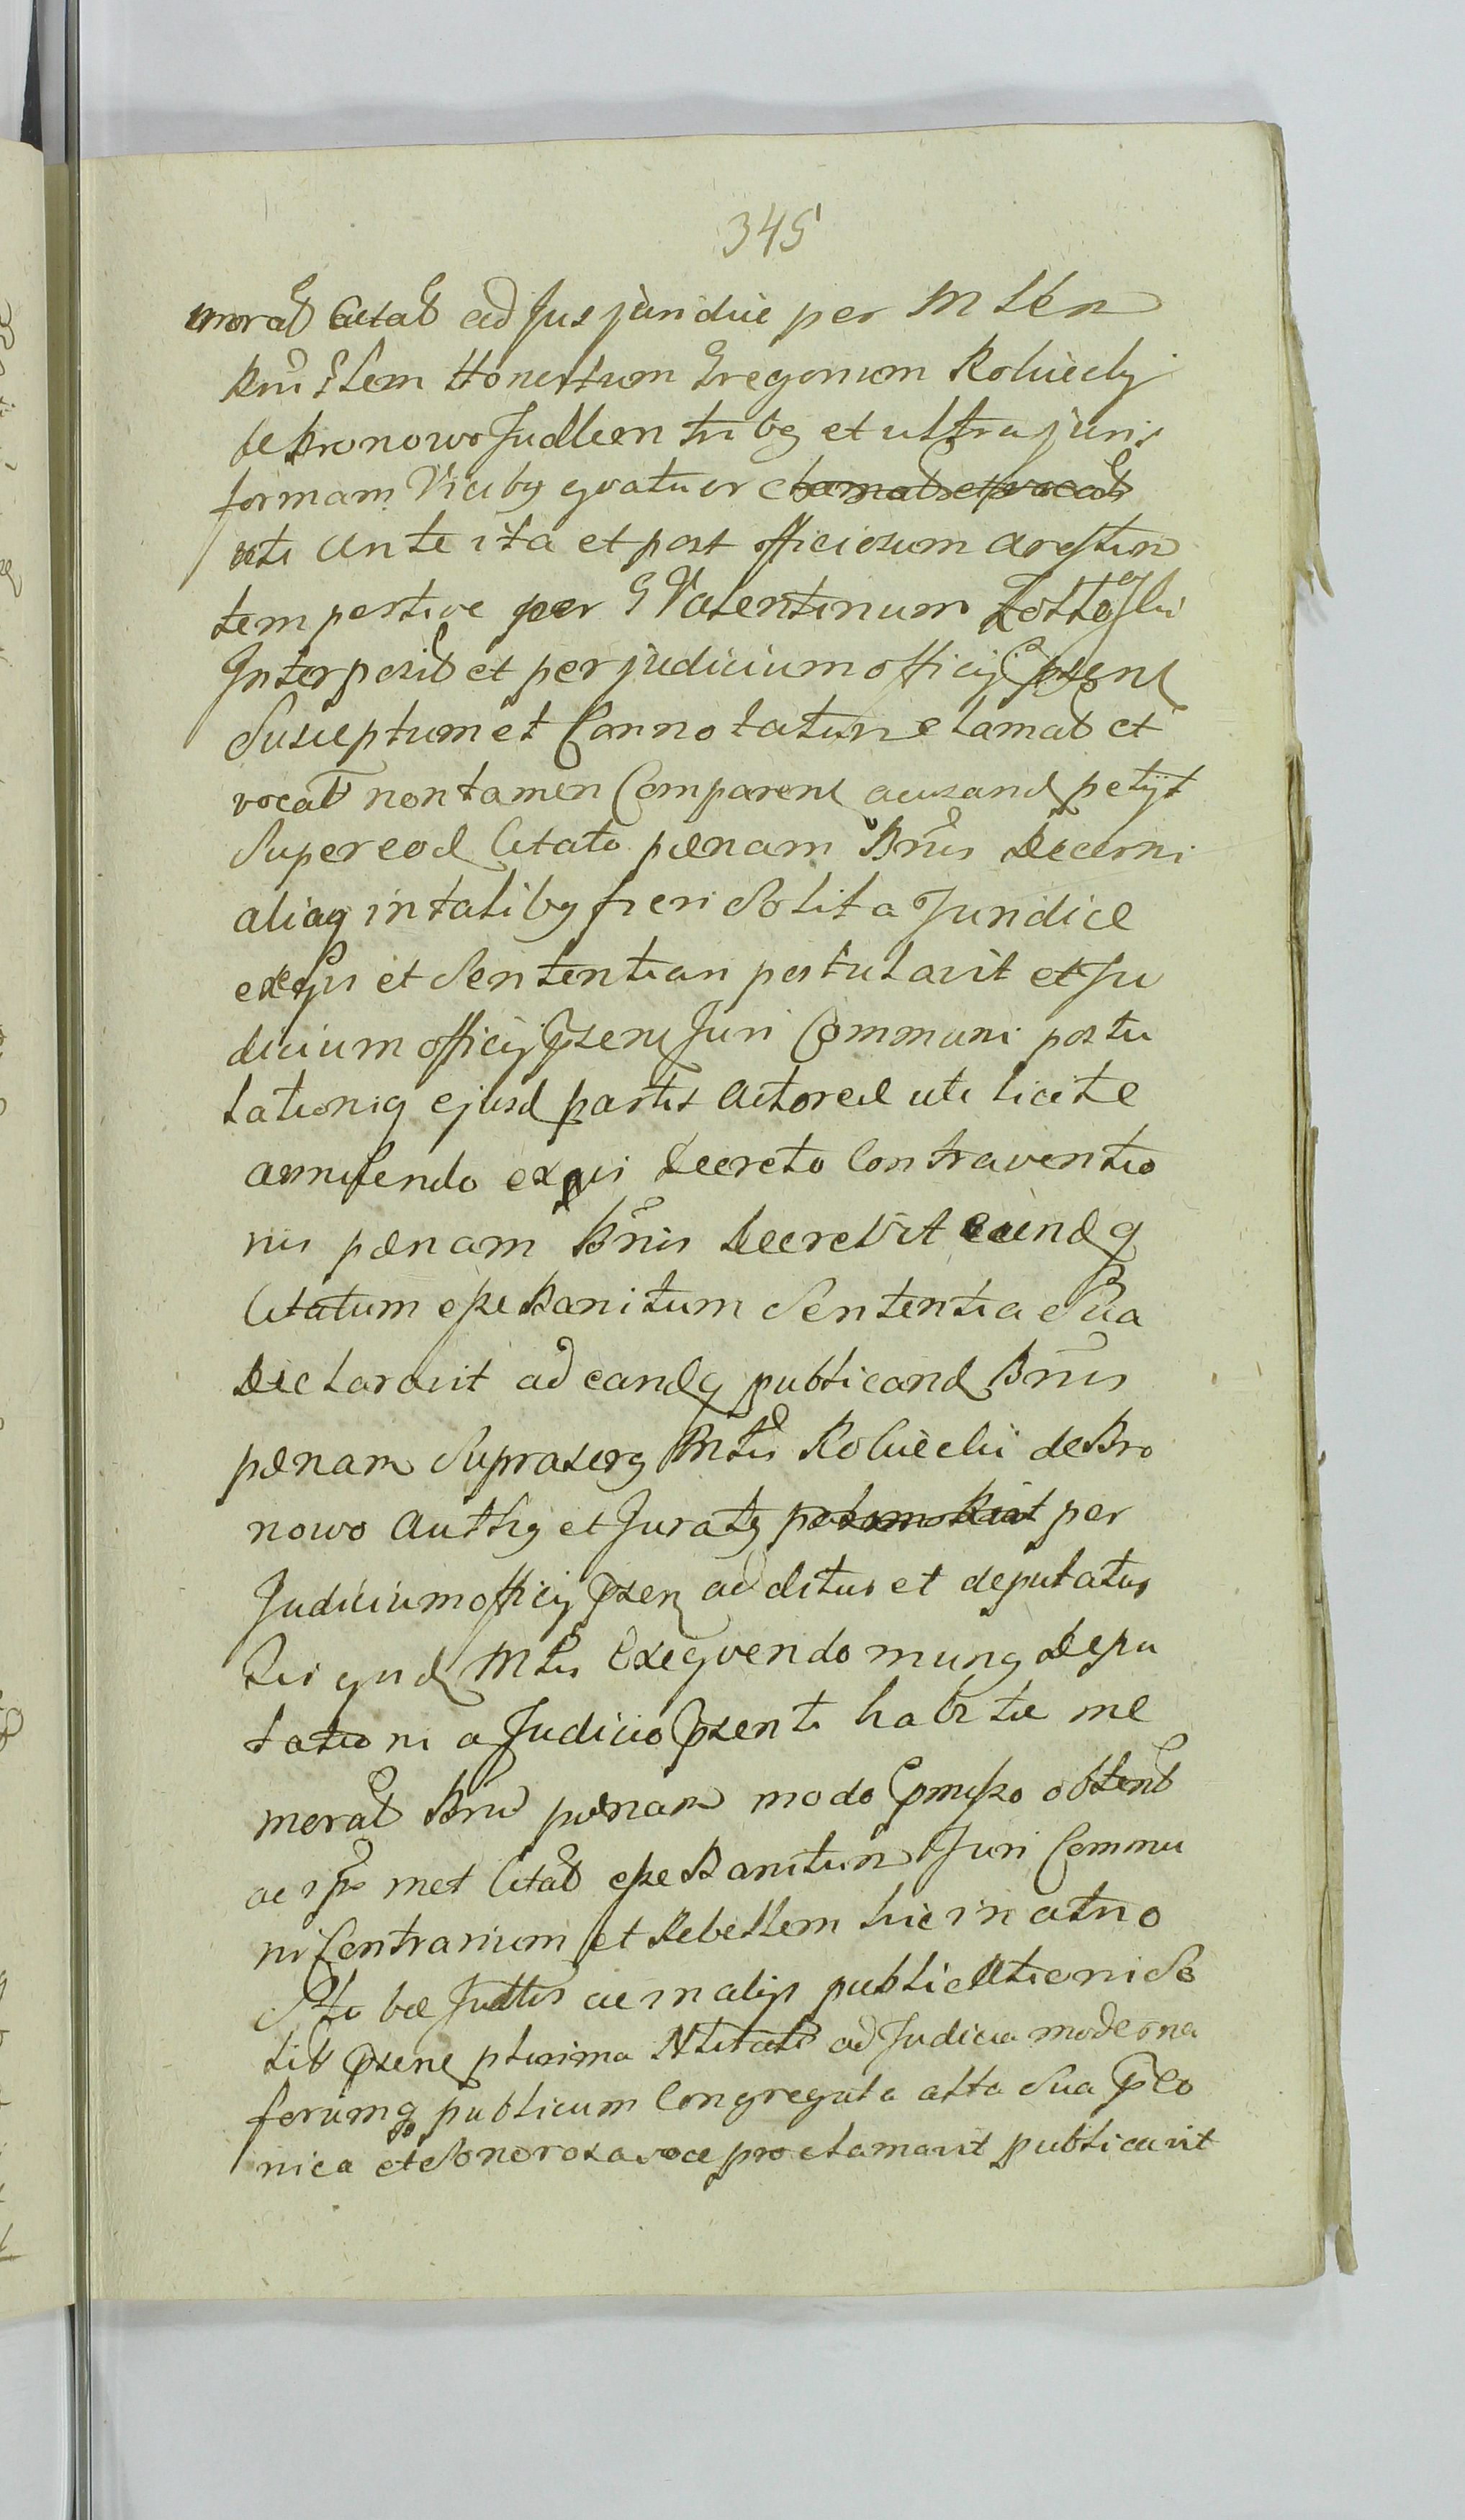 345
morat Citat ad Jus juridice per Mtlen
Rni Slem Honestum Gregorium Kobiecky
de Bronowo Judllem tribq et ultra juris
formam Vicibq qvatuor clamat et vocat
uti ante ita et post officiosum arestum
tempestive per G Valentinum Zottoski
Interposit et per judicium officij psens
Susceptum et Connotatum clamat et
vocat non tamen Comparent acusand petijt
Super eod Citato pænam Bnis Decerni
aliaq in talibq fieri Solita Juridice
exqui et Sententiam postulavit et Ju
dicium officij psens Juri Communi postu
lationiq ejusd partis Actoreæ uti licite
annuendo exqui Decreto Contraventio
nis pænam Bnis Decrevit eundq
Citatum esse Banitum Sententia Sua
Declaravit ad eandq publicand Bnis
pænam Suprascrq Mtlis Kobiecki de Bro
nowo Authq et Juratq per
Judicium officij psens additus et deputatus
Qui qud Mtlis Exeqvendo munq Depu
tationi a Judicio psenti habitæ me
morat Bnis pænam modo pmisso obtent
ac ipm met Citat esse Banitum Juri Commu
ni Contrarium et Rebellem hic in atrio
Stubæ Judllis ac in alijs publicationi So
lit psene plurima Nbtate ad Judicia moderna
forumq publicum Congregata alta Sua pco
nica et Sonorosa voce proclamavit publicavit